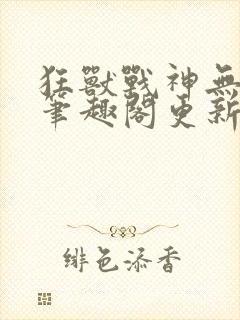 狂獸戰神無
筆趣閣更新
緋色添香